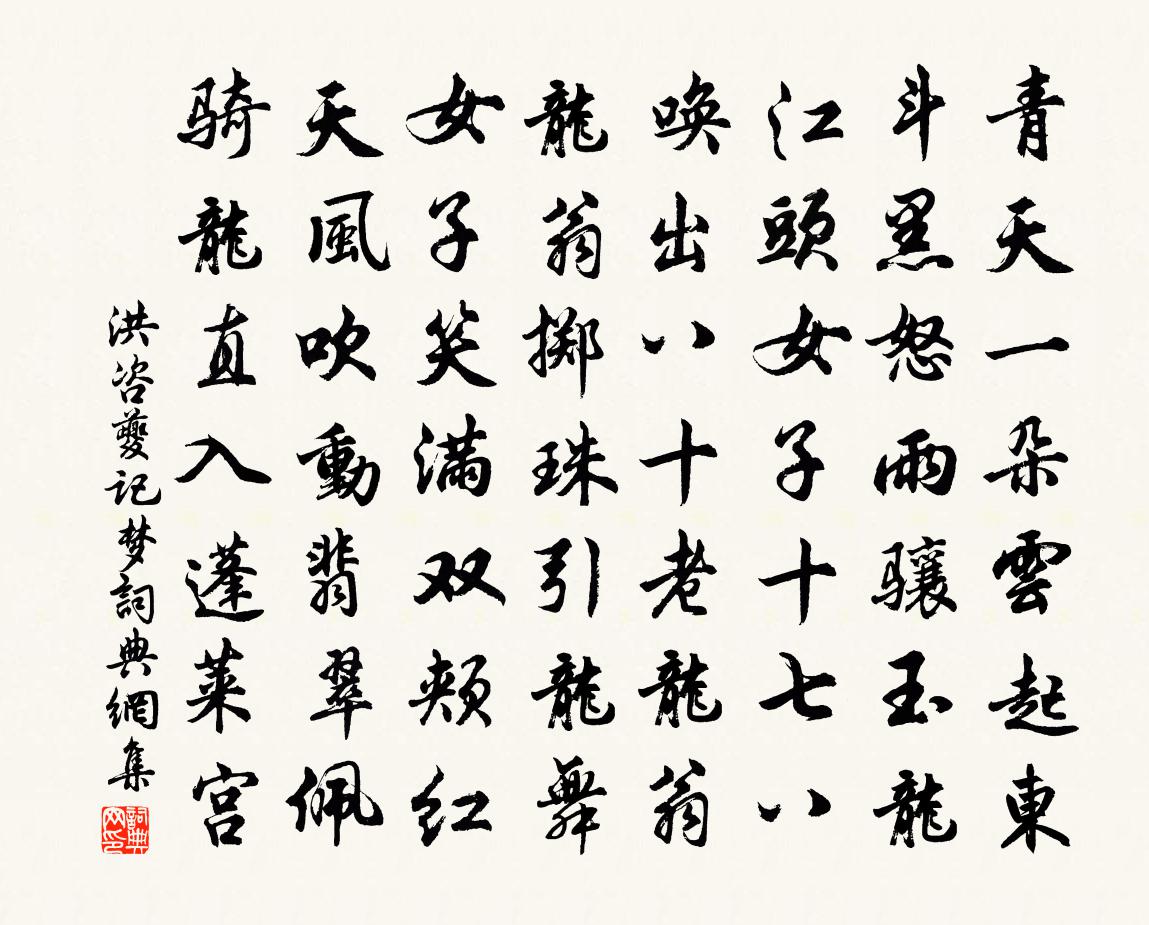 青天一朵雲起東
斗黑怒雨驤玉龍
江頭女子十七八
唤出八十老龍翁
龍翁擲珠引龍舞
女子笑滿双頰红
天風吹動翡翠佩
骑龍直入蓬萊宫
洪咨夔记梦詞典網集
詞典网印